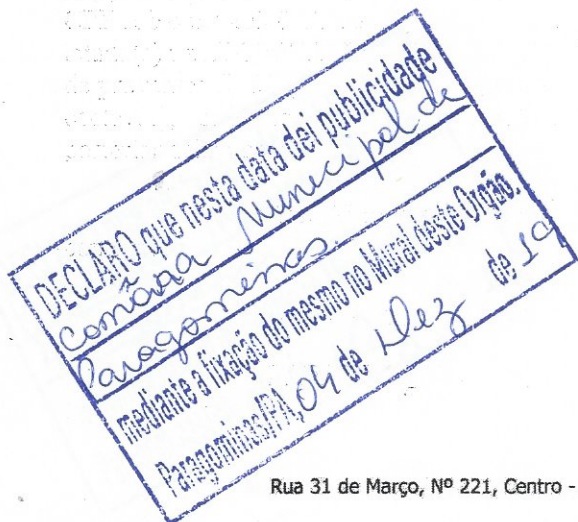 DECLARO que nesta data dei publicidade
Camara Municipal de
Paragominas
mediante a fixação do mesmo no Mural deste Orgão.
Paragominas/PA, 04 de Dez de 19
Rua 31 de Março, Nº 221, Centro -